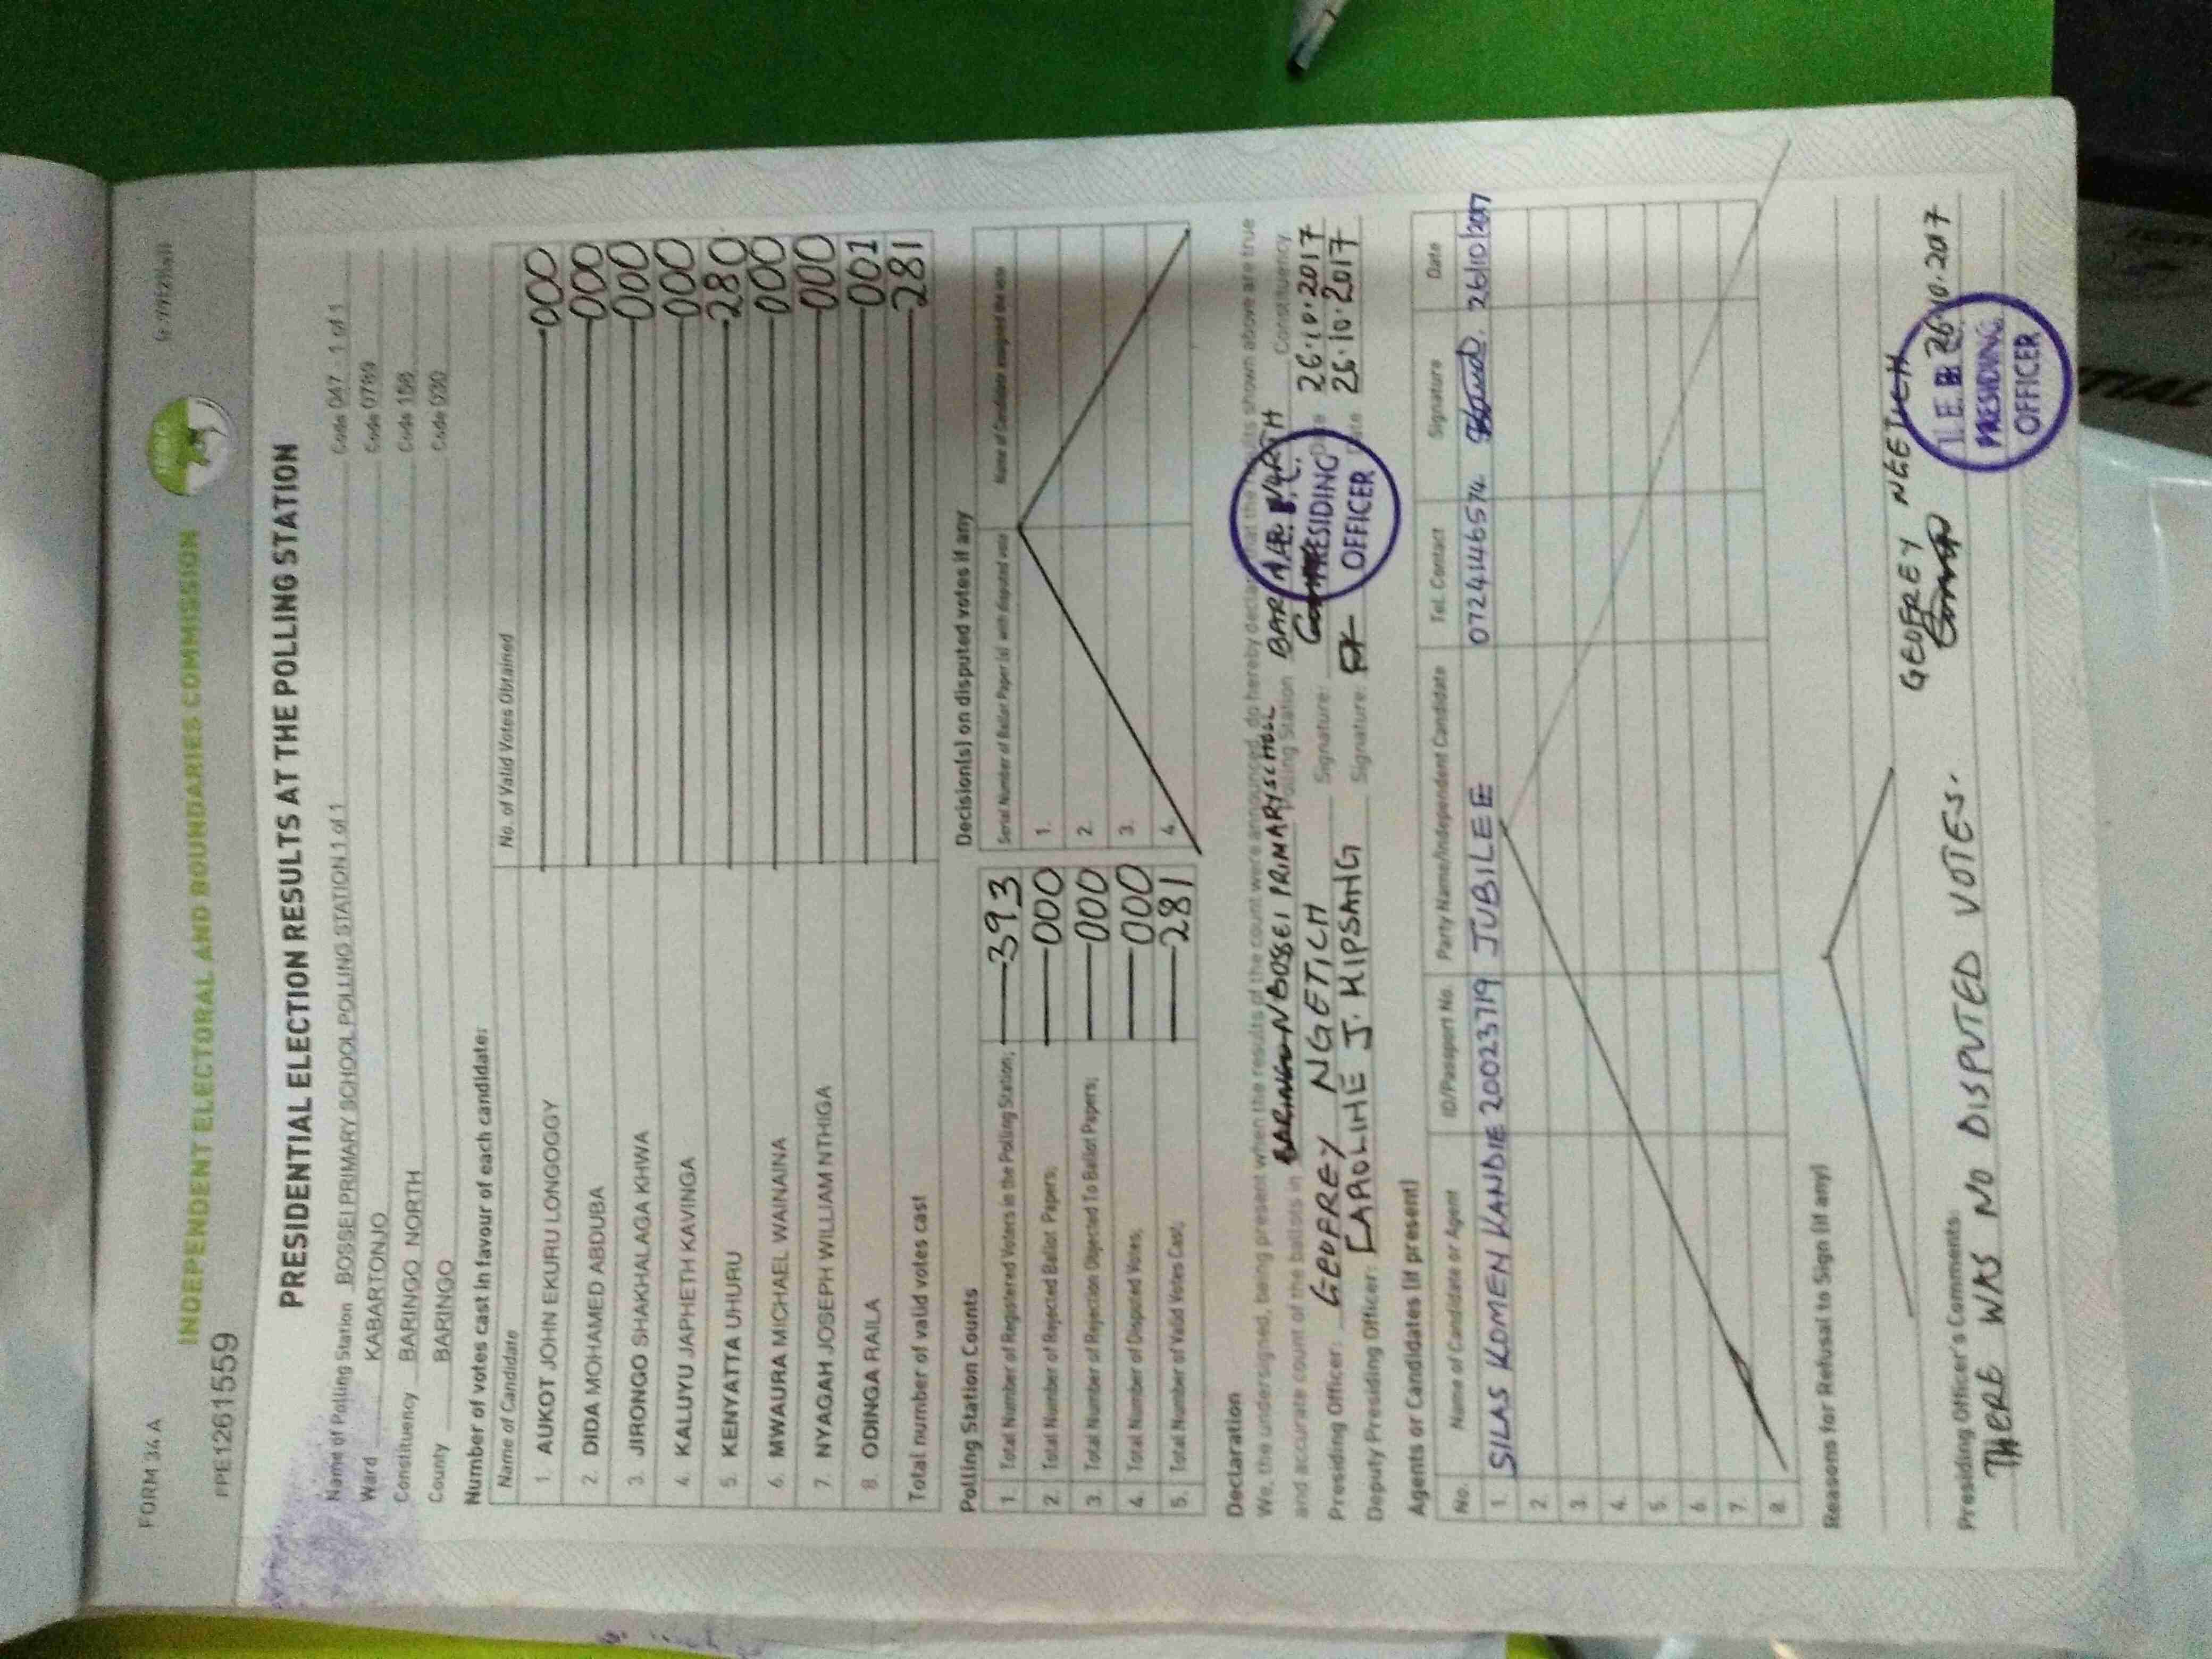 FORM 34 A
INDEPENDENT ELECTORAL AND BOUNDARIES COMMISSION
PPE1261559
PRESIDENTIAL ELECTION RESULTS AT THE POLLING STATION
Name of Polling Station BOSSEI PRIMARY SCHOOL POLLING STATION 1 of 1 Code 047 1 of 1
Ward KABARTONJO Code 0789
Constituency BARINGO NORTH Code 158
County BARINGO Code 030
Number of votes cast in favour of each candidate:
Name of Candidate No. of Valid Votes Obtained
1. AUKOT JOHN EKURU LONGOGGY 000
2 DIDA MOHAMED ABDUBA 000
3. JIRONGO SHAKHALAGA KHWA 000
4. KALUYU JAPHETH KAVINGA 000
5. KENYATTA UHURU 280
6. MWAURA MICHAEL WAINAINA 000
7. NYAGAH JOSEPH WILLIAM NTHIGA 000
8 ODINGA RAILA 001
Total number of valid votes cast 281
Polling Station Counts
1. Total Number of Registered Voters in the Polling Station; 393
2. Total Number of Rejected Ballot Papers; 000
3. Total Number of Rejection Objected To Ballot Papers; 000
4. Total Number of Disputed Votes; 000
5. Total Number of Valid Votes Cast; 281
Decision(s) on disputed votes if any
Serial Number of Ballot Paper (s) with disputed vote Name of Candidate assigned the vote
1.
2.
3.
4.
Declaration
We, the undersigned, being present when the results of the count were announced, do hereby declare that the results shown above are true
and accurate count of the ballots in BOSSEI PRIMARY SCHOOL Polling Station Constituency
Presiding Officer: GEOFREY NGETICH Signature: Date 26.10.2017
Deputy Presiding Officer: CAROLINE J. KIPSANG Signature: Date 26.10.2017
PRESIDING
OFFICER
Agents or Candidates (if present)
No. Name of Candidate or Agent ID/Passport No. Party Name/Independent Candidate Tel. Contact Signature Date
1. SILAS KOMEN KANDIE 20023719 JUBILEE 0724146574 26/10/2017
2.
3.
4.
5.
6.
7.
8.
Reasons for Refusal to Sign (if any)
GEOFREY
Presiding Officer's Comments:
26.10.2017
THERE WAS NO DISPUTED VOTES.
I.E.B.C.
PRESIDING
OFFICER